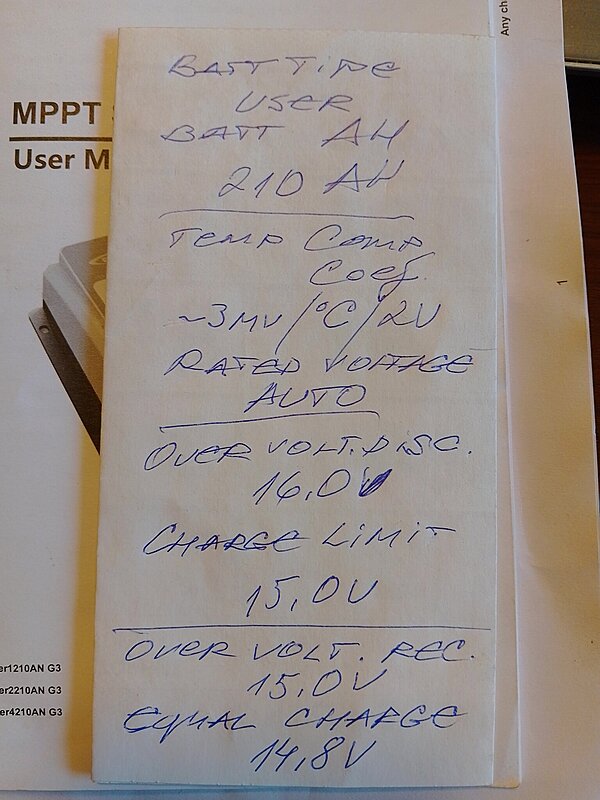 Any ch
MPPT
User M
BATT TIPE
USER
BATT AH
210 AH
TEMP COMP
COEF.
~3MV/°C/2V
RATED VOLTAGE
AUTO
OVER VOLT.DISC.
16,0V
CHARGE LIMIT
15,0V
OVER VOLT. REC.
15,0V
EQUAL CHARGE
14,8V
1
er1210AN G3
er2210AN G3
er4210AN G3